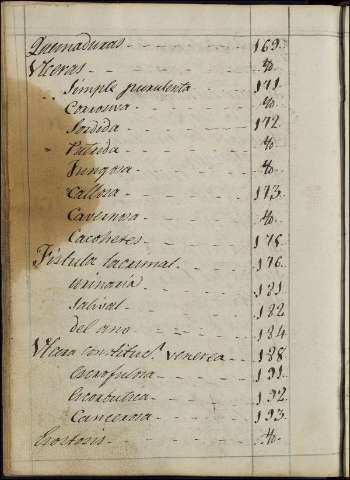 Quemaduras - - - - - - 169.
Vlceras - - - - - - - - %.
.. Simple purulenta - - 171.
Corrosiva - - - - - - %.
Sordida - - - - - - 172.
Putrida - - - - - - %.
Fungosa - - - - - - %.
Callosa - - - - - - 173.
Cavernosa - - - - - %.
Cacohetes - - - - - 175.
Fistula lacrimal - - - - 176.
urinaria - - - - - - 181.
Salival - - - - - - 182.
del ano - - - - - - 184.
Vlcera constituc.l venerea - - 188.
Escrofulosa - - - - 191.
Escorbutica - - - - 192.
Cancerosa - - - - - 193.
Exostosis - - - - - - - %.